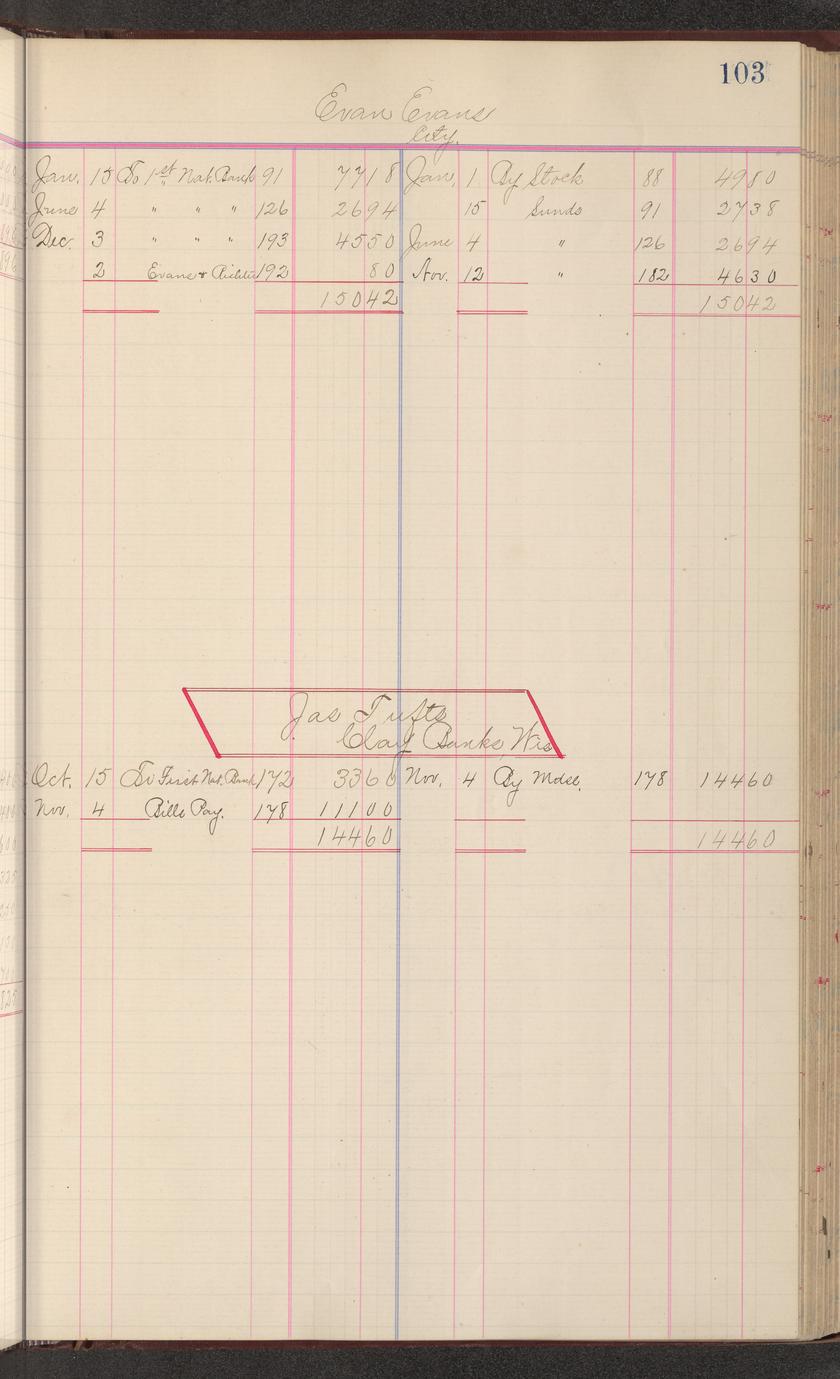 103
Evan Evans
City.
Jan. 15 To 1st Nat. Bank 91 7718 Jan. 1 By Stock 88 4980
June 4 " " " 126 2694 15 Sunds 91 2738
Dec. 3 " " " 193 4550 June 4 " 126 2694
2 Evans & 192 80 Nov. 12 " 182 4630
15042 15042
Jas Tufts
Clay Banks, Wis
Oct. 15 To First Nat. Bank 172 3360 Nov. 4 By Mdse. 178 14460
Nov. 4 Bills Pay. 178 11100
14460 14460